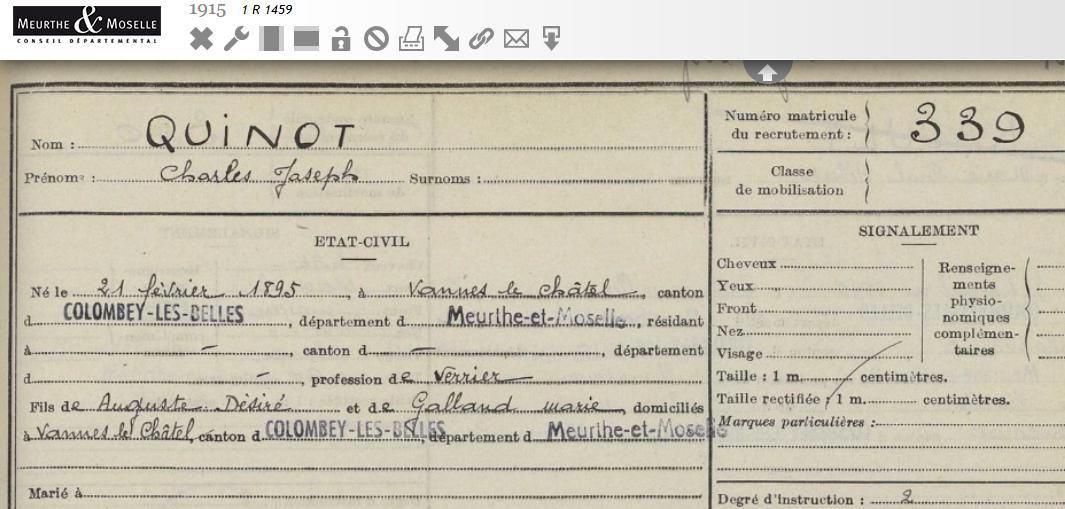 MEURTHE & MOSELLE
CONSEIL DÉPARTEMENTAL
1915 1 R 1459
Nom : QUINOT
Prénoms : Charles Joseph Surnoms :
ETAT-CIVIL
Né le 21 février 1895, à Vannes le châtel, canton
d COLOMBEY-LES-BELLES, département d Meurthe-et-Moselle, résidant
à —, canton d —, département
d —, profession de Verrier
Fils de Auguste Désiré et de Galland marie, domiciliés
à Vannes le Châtel, canton d COLOMBEY-LES-BELLES, département d Meurthe-et-Moselle
Marié à
Numéro matricule
du recrutement : 339
Classe
de mobilisation
SIGNALEMENT
Cheveux
Yeux
Front
Nez
Visage
Renseigne-
ments
physio-
nomiques
complémen-
taires
Taille : 1 m. centimètres.
Taille rectifiée : 1 m. centimètres.
Marques particulières :
Degré d'instruction : 2